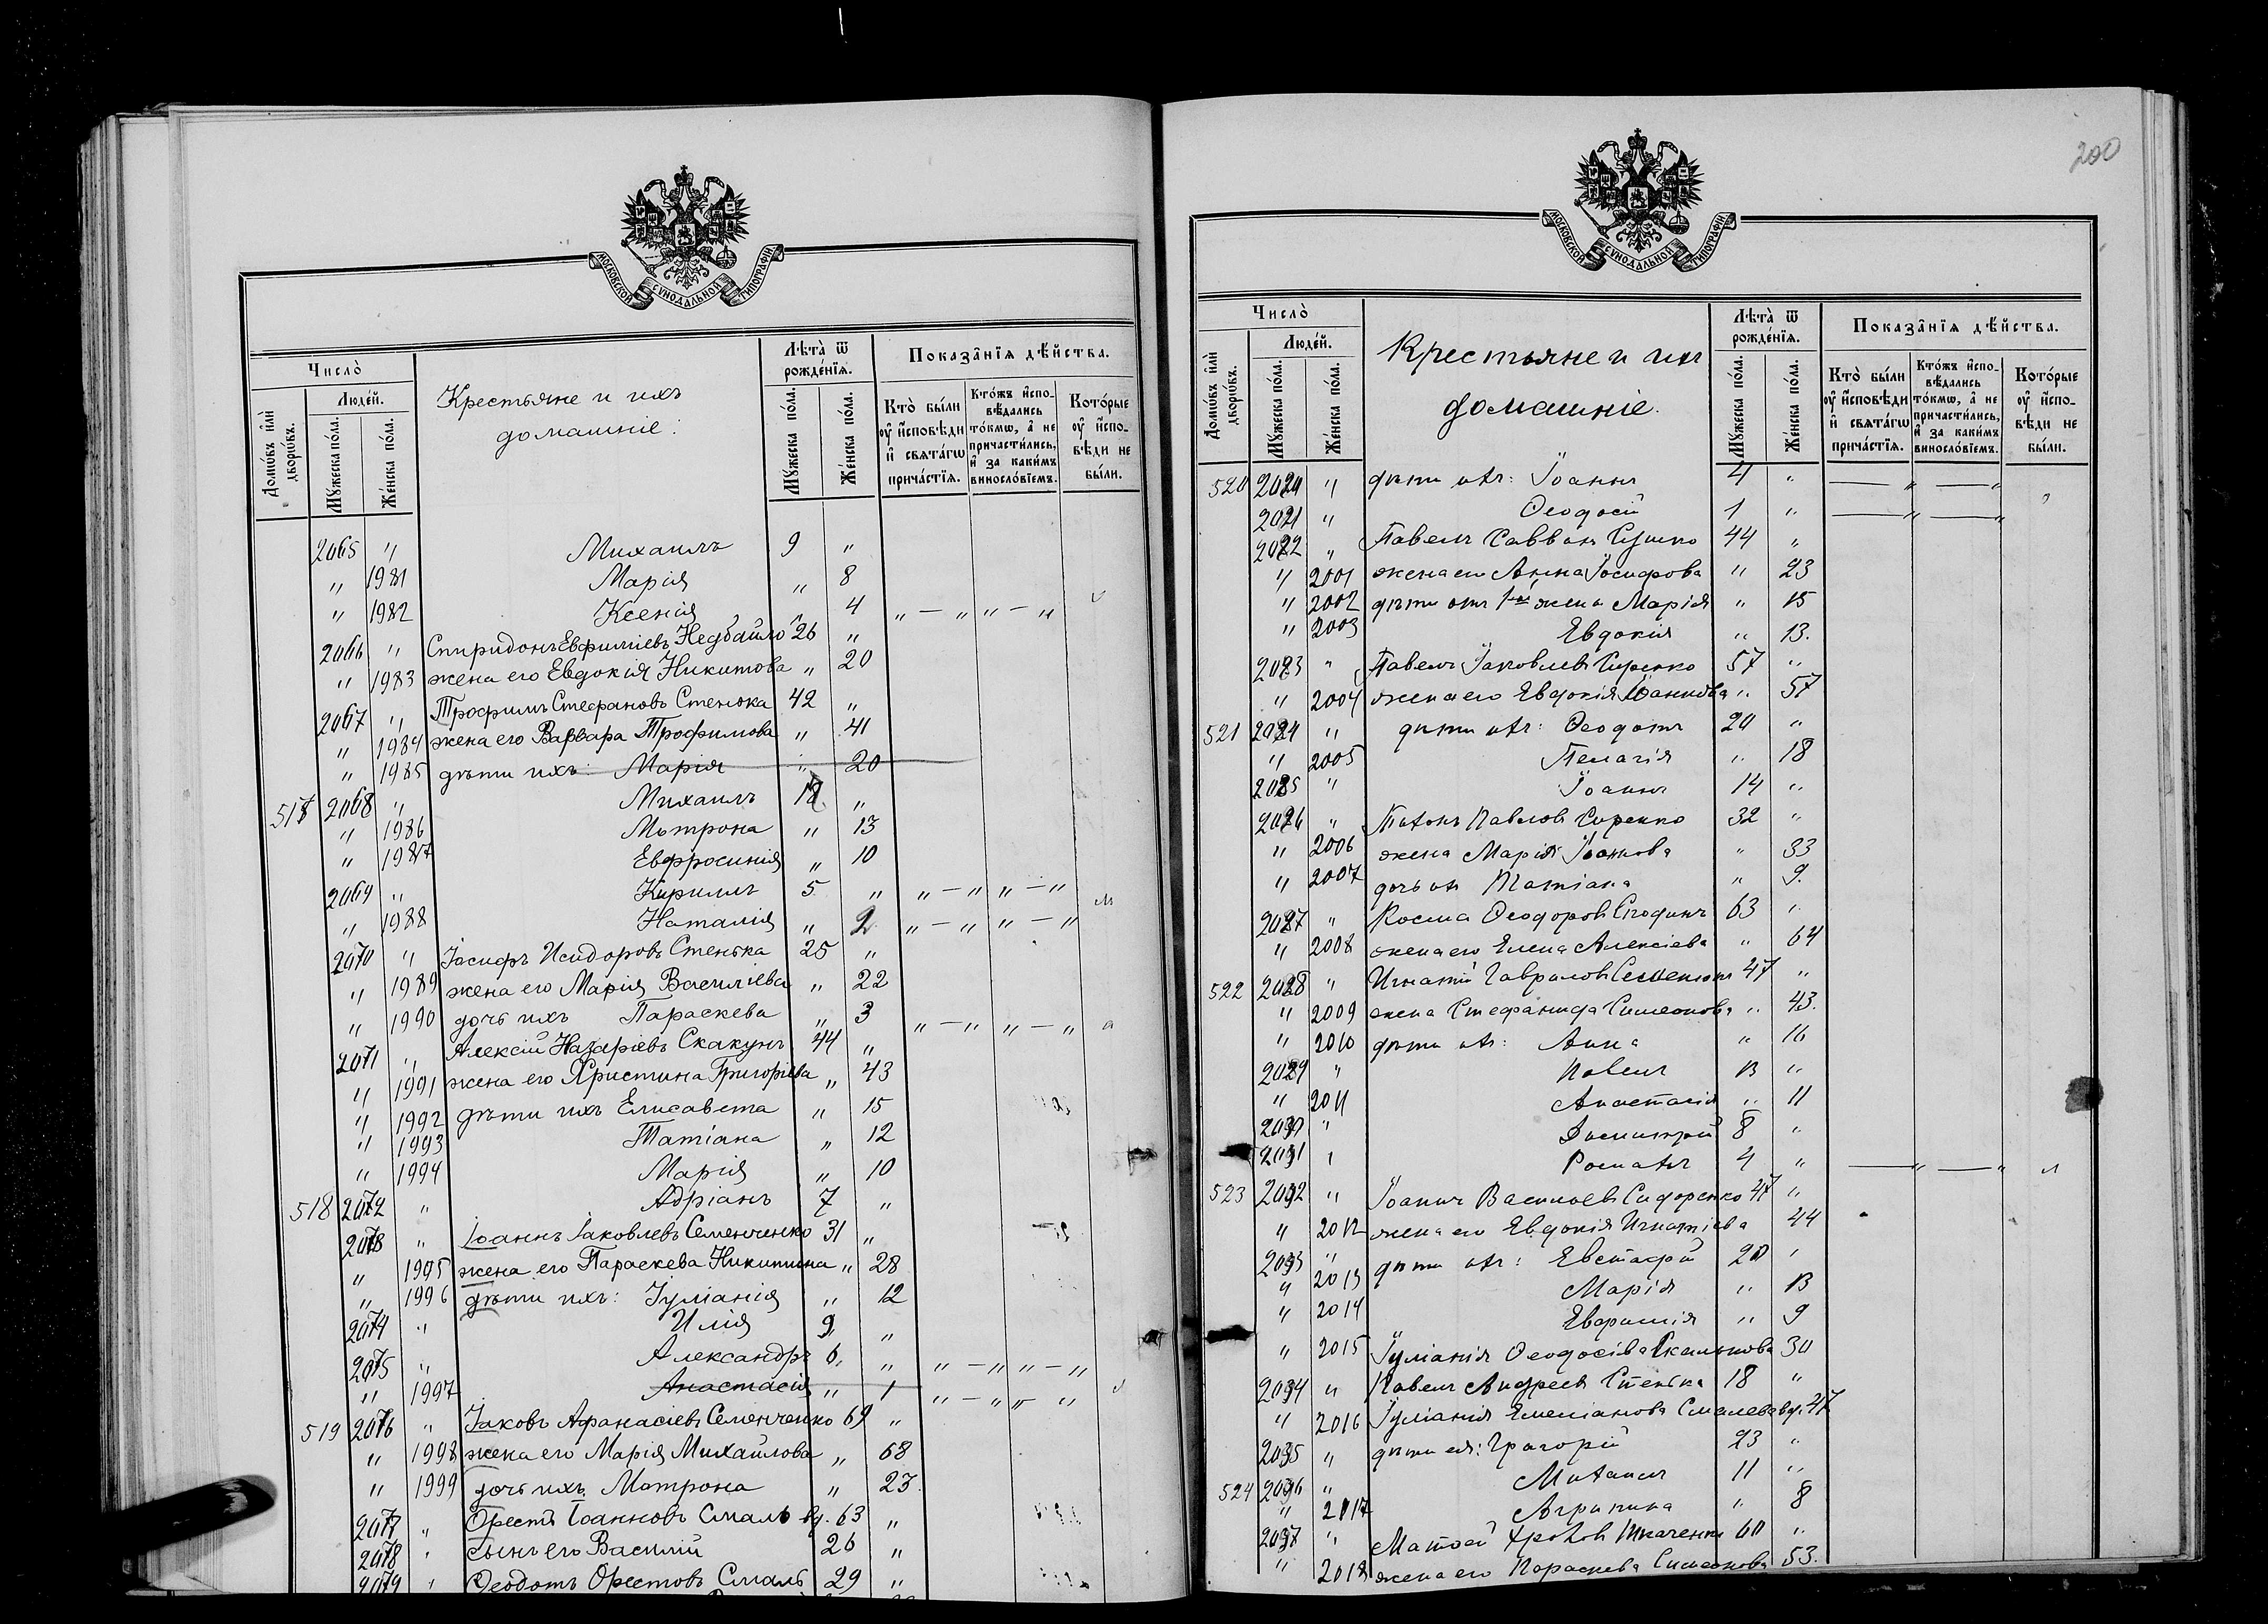 МОСКОВСКОЙ СѴНОДАЛЬНОЙ ТИПОГРАФІИ
Число̀
Домѡ́въ и҆лѝ дворѡ́въ.
Люде́й.
Мꙋ́жеска по́ла.
Же́нска по́ла.
Крестьяне и ихъ
домашніе:
Лѣта̀ ѿ рожде́нїѧ.
Мꙋ́жеска по́ла.
Же́нска по́ла.
Показа̑нїѧ дѣ́йства.
Кто̀ бы́ли ᲂу҆ и҆сповѣ́ди и҆ свѧта́гѡ прича́стїѧ.
Кто́жъ и҆сповѣ́дались то́кмѡ, а҆ не причасти́лись, и҆ за каки́мъ виносло́вїемъ.
Кото́рые ᲂу҆ и҆сповѣ́ди не бы́ли.
2065 " Михаилъ 9 "
" 1981 Марія " 8
" 1982 Ксенія " 4 " — " " — "
2066 " Спиридонъ Евфиміевъ Недбайло 26 "
" 1983 жена его Евдокія Никитова " 20
2067 " Трофимъ Стефановъ Стенька 42 "
" 1984 жена его Варвара Трофимова " 41
" 1985 дѣти ихъ: Марія " 20
517 2068 " Михаилъ "
" 1986 Мотрона " 13
" 1987 Евфросинія " 10
2069 " Кириллъ 5 " " — " " — "
" 1988 Наталія " 2 " — " " — "
2070 " Іосифъ Исидоровъ Стенька 25 "
" 1989 жена его Марія Василіева " 22
" 1990 дочь ихъ Параскева " 3 " — " " — "
2071 " Алексій Назаріевъ Скакунъ 44 "
" 1991 жена его Христина Григоріева " 43
" 1992 дѣти ихъ Елисавета " 15
" 1993 Татіана " 12
" 1994 Марія " 10
518 2072 " Адріанъ 7 "
2073 " Іоаннъ Іаковлевъ Семенченко 31 "
" 1995 жена его Параскева Никитина " 28
" 1996 дѣти ихъ: Іуліанія " 12
2074 " Илія 9 "
2075 " Александръ 6. " " — " " — "
" 1997 Анастасія " 1 " — " " — "
519 2076 " Іаковъ Афанасіевъ Семенченко 69 "
" 1998 жена его Марія Михайлова " 68
" 1999 дочь ихъ Мотрона " 23
2077 " Орестъ Іоанновъ Смаль вд. 63 "
2078 " сынъ его Василій 26 "
2079 " Ѳеодотъ Орестовъ Смаль 29 "
200
МОСКОВСКОЙ СѴНОДАЛЬНОЙ ТИПОГРАФІИ
Число̀
Домѡ́въ и҆лѝ дворѡ́въ.
Люде́й.
Мꙋ́жеска по́ла.
Же́нска по́ла.
Крестьяне и ихъ
домашніе.
Лѣта̀ ѿ рожде́нїѧ.
Мꙋ́жеска по́ла.
Же́нска по́ла.
Показа̑нїѧ дѣ́йства.
Кто̀ бы́ли ᲂу҆ и҆сповѣ́ди и҆ свѧта́гѡ прича́стїѧ.
Кто́жъ и҆сповѣ́дались то́кмѡ, а҆ не причасти́лись, и҆ за каки́мъ виносло́вїемъ.
Кото́рые ᲂу҆ и҆сповѣ́ди не бы́ли.
520 2020 " дѣти ихъ: Іоаннъ 4 " — " — "
2021 " Ѳеодосій 1 " — " — "
2022 " Павелъ Саввинъ 44 "
" 2001 жена его Анна Іосифова " 23
" 2002 дѣти отъ 1ой жены Марія " 15
" 2003 Евдокія " 13.
2023 " Павелъ Іаковлевъ Сиренко 57 "
" 2004 жена его Евдокія Іоаннова " 57
521 2024 " дѣти ихъ: Ѳеодотъ 20 "
" 2005 Пелагія " 18
2025 " Іоаннъ 14 "
2026 " Павловъ Сиренко 32 "
" 2006 жена Марія Іоаннова " 33
" 2007 дочь их Татіана " 9.
2027 " Косма Ѳеодоровъ 63 "
" 2008 жена его Елена Алексіева " 64
522 2028 " Игнатій Гавриловъ Семенюкъ 47 "
" 2009 жена Стефанида Симеонова " 43.
" 2010 дѣти ихъ: Анна " 16
2029 " Павелъ 13 "
" 2011 Анастасія " 11
2030 " Димитрій 8 "
2031 " Романъ 4 " — " — "
523 2032 " Іоаннъ Васильевъ Сидоренко 47 "
" 2012 жена его Евдокія Игнатіева 44
2033 " дѣти ихъ: Евстафій 20 "
" 2013 Марія " 13
" 2014 Евфимія " 9
" 2015 Іуліанія Ѳеодосіева 30
2034 " Павелъ Андреевъ Стенька 18 "
" 2016 Іуліанія Емеліанова Смалева вд. 47
2035 " дѣти ея: Григорій 23 "
524 2036 " Михаилъ 11 "
" 2017 Агрипина " 8
2037 " Матѳей Ткаченко 60 "
" 2018 жена его Параскева Симеонова 53.